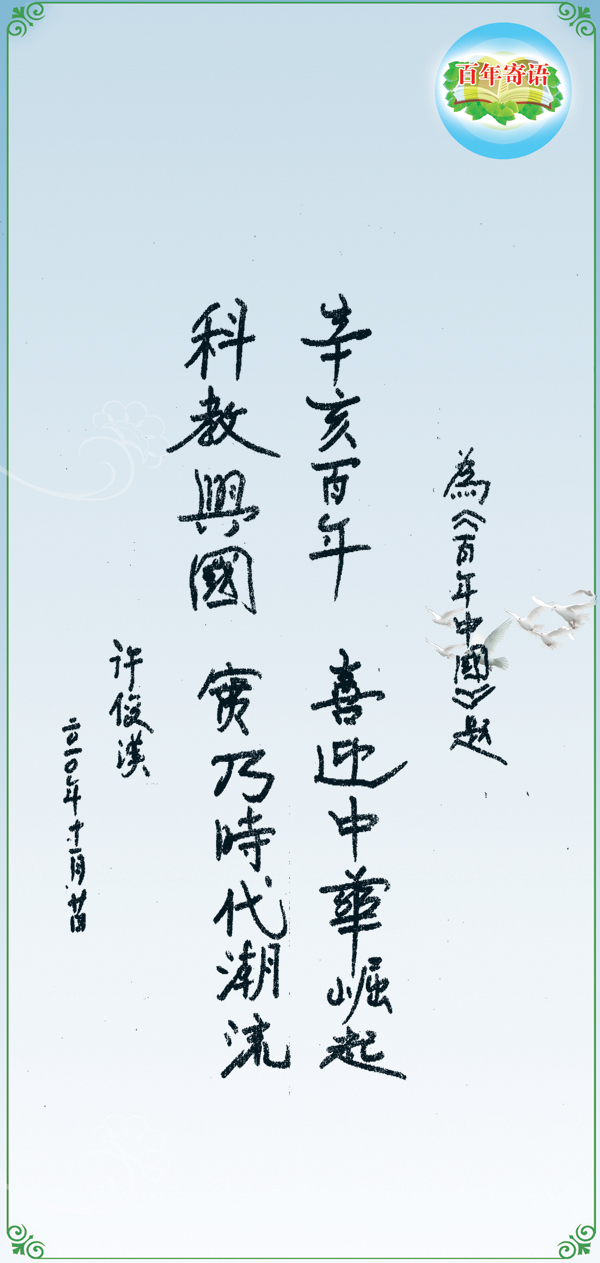 百年寄语
為《百年中國》题
辛亥百年 喜迎中華崛起
科教興國 實乃時代潮流
许俊漢
二〇一〇年十一月廿